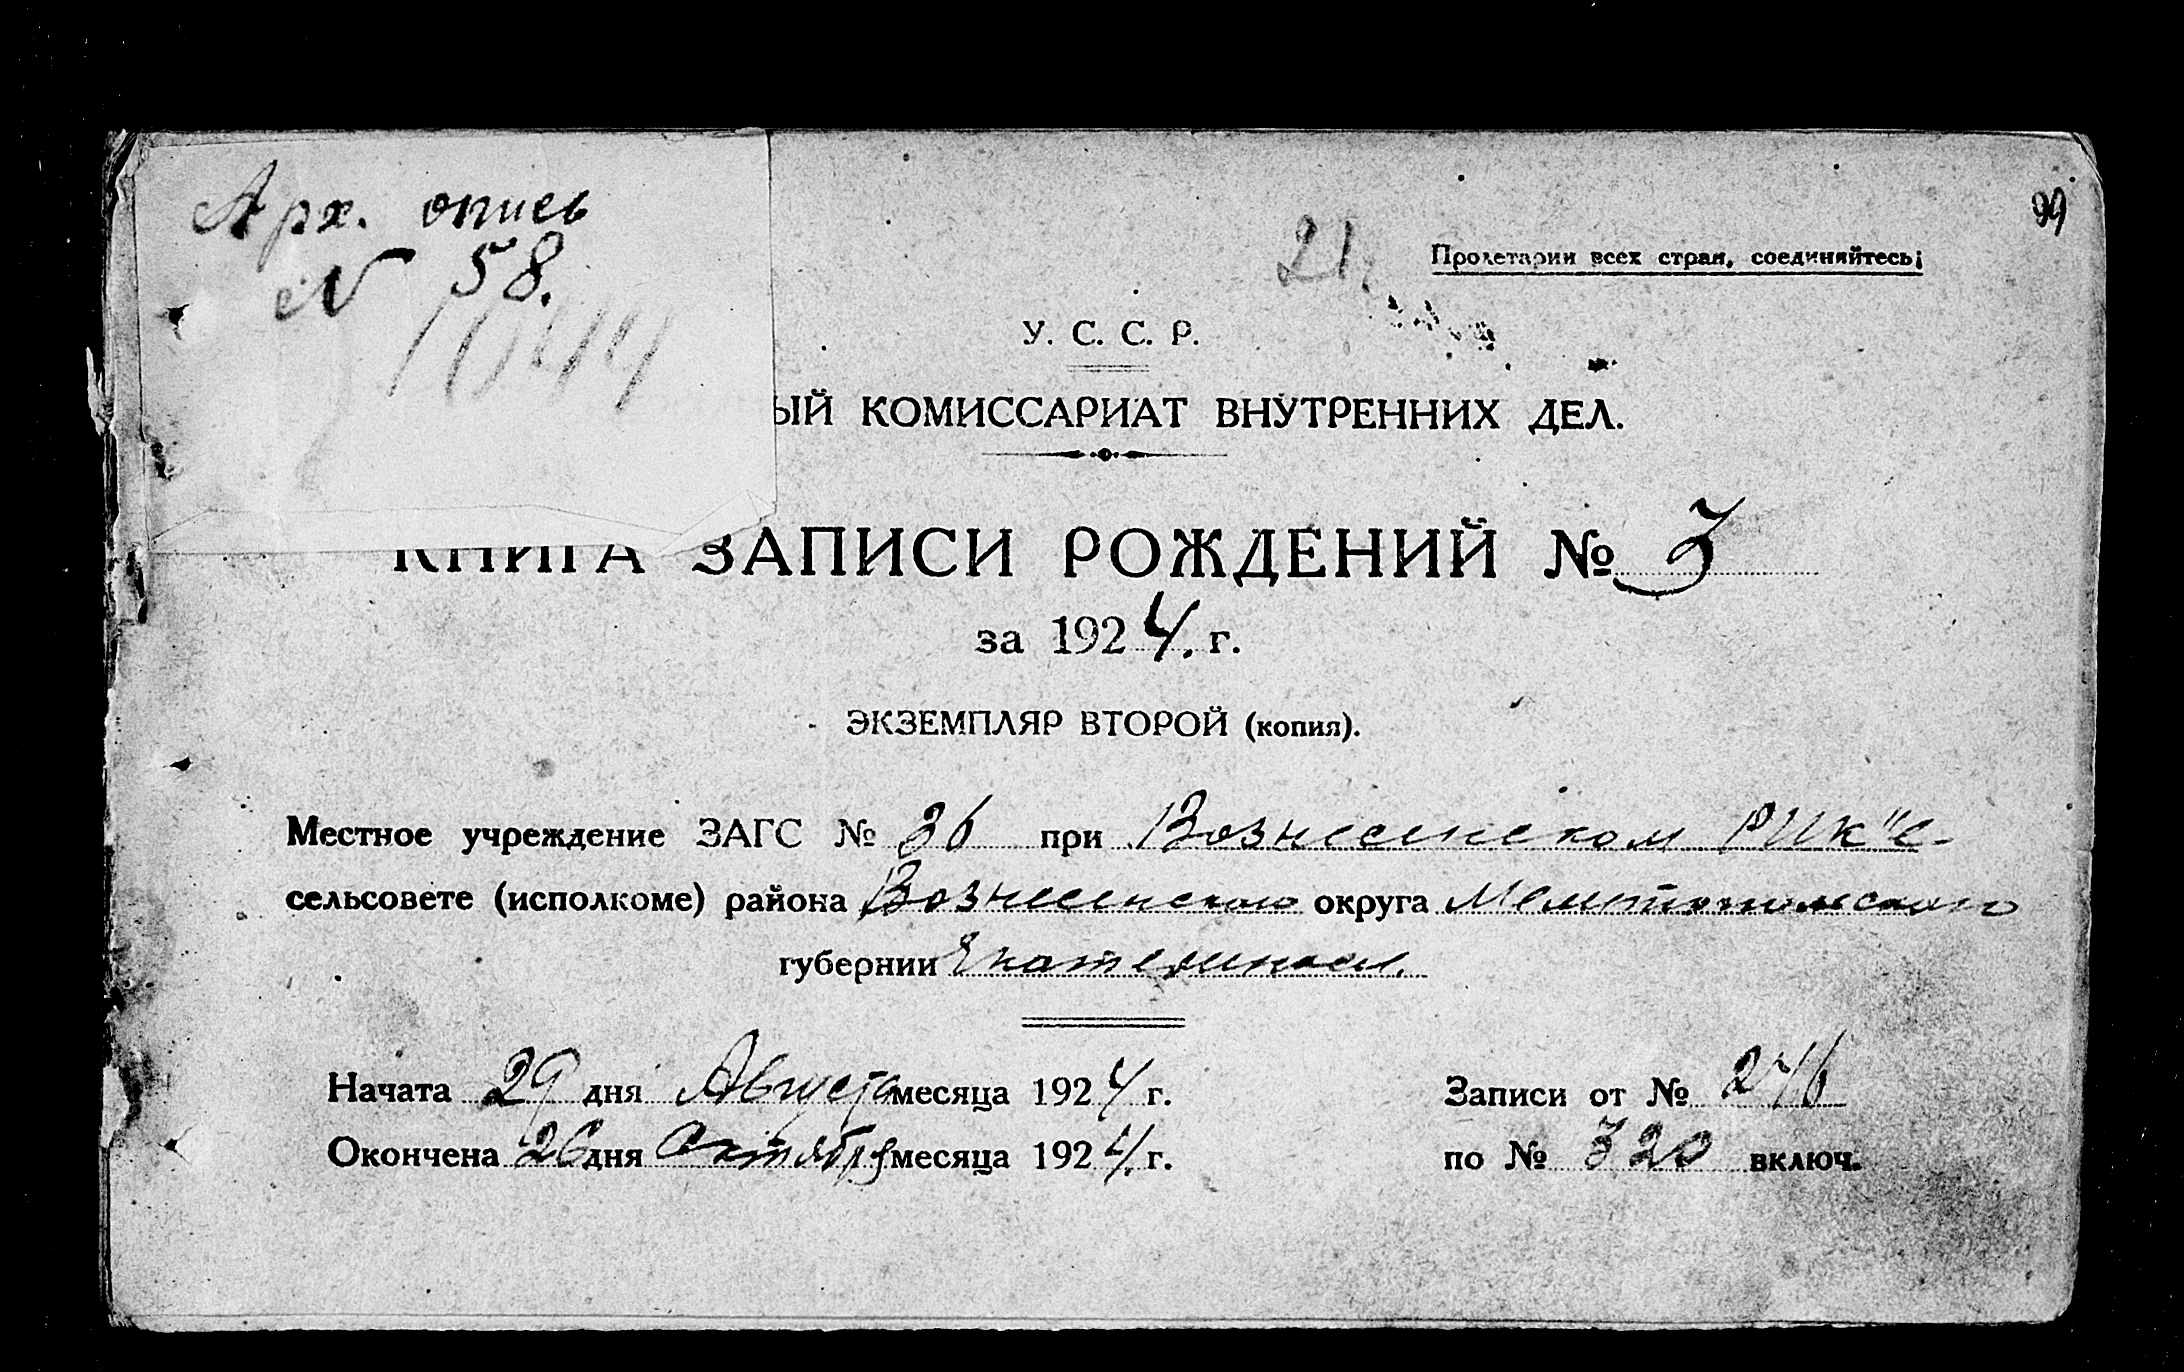 Арх. опись
N 58.
1044
99
21
Пролетарии всех стран, соединяйтесь!
У. С. С. Р.
ЫЙ КОМИССАРИАТ ВНУТРЕННИХ ДЕЛ.
КНИГА ЗАПИСИ РОЖДЕНИЙ № 3
за 1924. г.
ЭКЗЕМПЛЯР ВТОРОЙ (копия).
Местное учреждение ЗАГС № 36 при Вознесенском РИК"е-
сельсовете (исполкоме) района Вознесенского округа Мелитопольского
губернии Екатериносл.
Начата 29 дня Августа месяца 1924 г.
Окончена 26 дня Октября месяца 1924. г.
Записи от № 246
по № 320 включ.